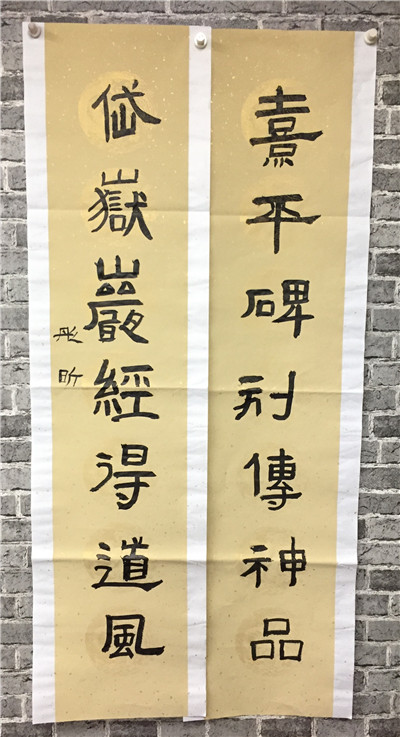 熹平碑別傳神品
岱嶽巖經得道風
彤昕